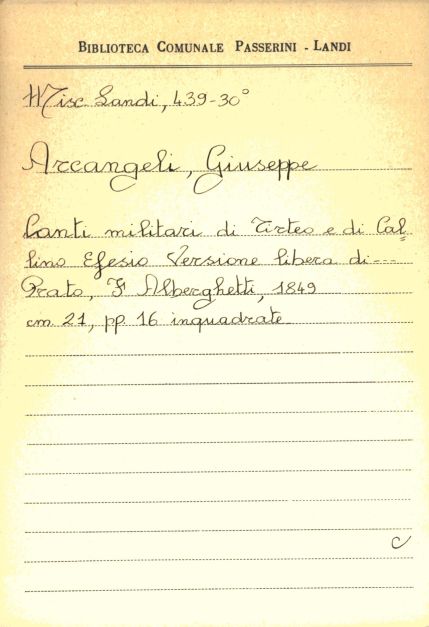 BIBLIOTECA COMUNALE PASSERINI - LANDI
Misc. Landi, 439-30°
Arcangeli, Giuseppe
Canti militari di Tirteo e di Cal=
lino Efesio Versione libera di---
Prato, F Alberghetti, 1849
cm 21, pp 16 inquadrate
C